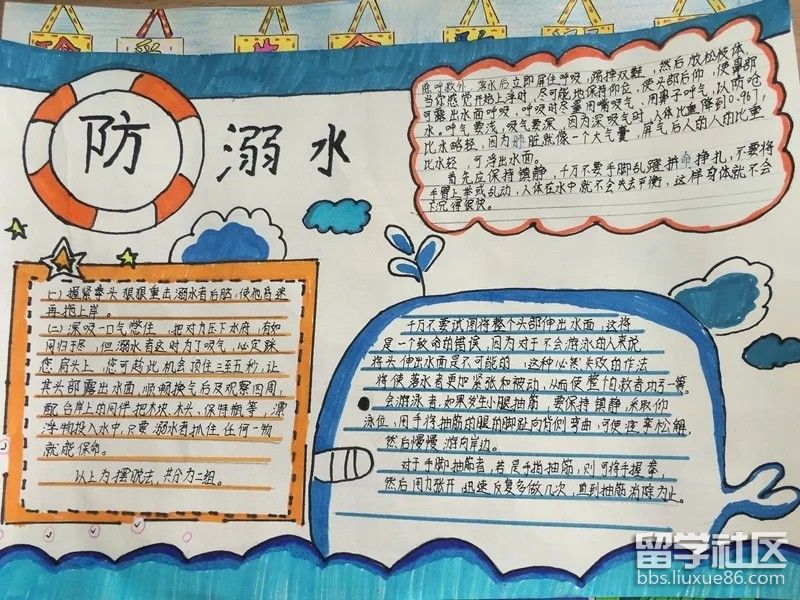 防溺水
除呼救外，落水后立即屏住呼吸，踢掉双鞋，然后放松肢体，
当你感觉开始上浮时，尽可能地保持仰位，使头部后仰，使鼻部
可露出水面呼吸，呼吸时尽量用嘴吸气、用鼻子呼气，以防呛
水。呼气要浅，吸气要深，因为深吸气时，人体比重降到0.967，
比水略轻，因为肺脏就像一个大气囊，屏气后人的人的比重
比水轻，可浮出水面。
首先应保持镇静，千万不要手脚乱蹬拼命挣扎，不要将
手臂上举或乱动，人体在水中就不会失去平衡，这样身体就不会
下沉得很快。
(一)握紧拳头狠狠重击溺水者后脑，使他昏迷
再拖上岸。
(二)深吸一口气憋住，把对方压下水底，有如
同归于尽，但溺水者这时为了吸气，必定踩
您肩头上，您可趁此机会顶住三至五秒，让
其头部露出水面，顺畅换气后及观察四周，
配合岸上的同伴把木块、木头、保特瓶等，漂
浮物投入水中，只要溺水者抓住任何一物
就能保命。
以上为摆脱法，共分为二组。
千万不要试图将整个头部伸出水面，这将
是一个致命的错误，因为对于不会游泳的人来说
将头伸出水面是不可能的，这种必然失败的作法
将使落水者更加紧张和被动，从而使整个自救者功亏一篑。
会游泳者，如果发生小腿抽筋，要保持镇静，采取仰
泳位，用手将抽筋的腿的脚趾向背侧弯曲，可使痉挛松解，
然后慢慢游向岸边。
对于手脚抽筋者，若是手指抽筋，则可将手握拳，
然后用力张开，迅速反复多做几次，直到抽筋消除为止。
留学社区
bbs.liuxue86.com